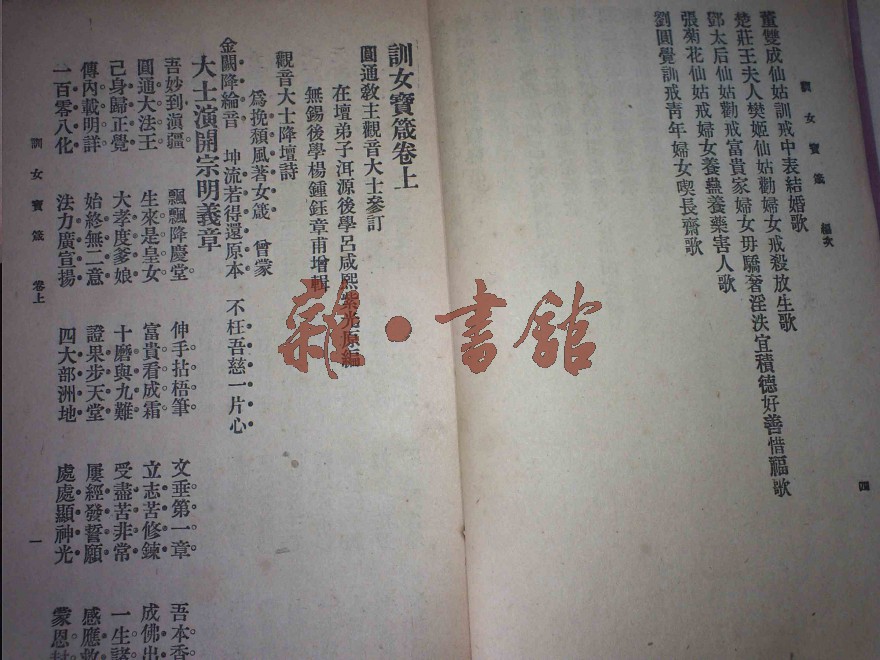 訓女寶箴 編次
董雙成仙姑訓戒中表結婚歌
楚莊王夫人樊姬仙姑勸婦女戒殺放生歌
鄧太后仙姑勸戒富貴家婦女毋驕奢淫泆宜積德好善惜福歌
張菊花仙姑戒婦女養蠱養藥害人歌
劉圓覺訓戒靑年婦女喫長齋歌
四
訓女寶箴卷上
圓通敎主觀音大士叅訂
在壇弟子洱源後學呂咸熙紫光原編
無錫後學楊鍾鈺章甫增輯
觀音大士降壇詩
爲挽頹風著女箴 曾蒙
金闕降綸音 坤流若得還原本 不枉吾慈一片心
大士演開宗明義章
吾妙到滇疆 飄飄降慶堂 伸手拈梧筆 文垂第一章 吾本香
圓通大法王 生來是皇女 富貴看成霜 立志苦修鍊 成佛出
己身歸正覺 大孝度爹娘 十磨與九難 受盡苦非常 一生諸
傳內載明詳 始終無二意 證果步天堂 屢經發誓願 感應救
一百零八化 法力廣宣揚 四大部洲地 處處顯神光 蒙恩封
訓女寶箴 卷上 一
雜·書舘